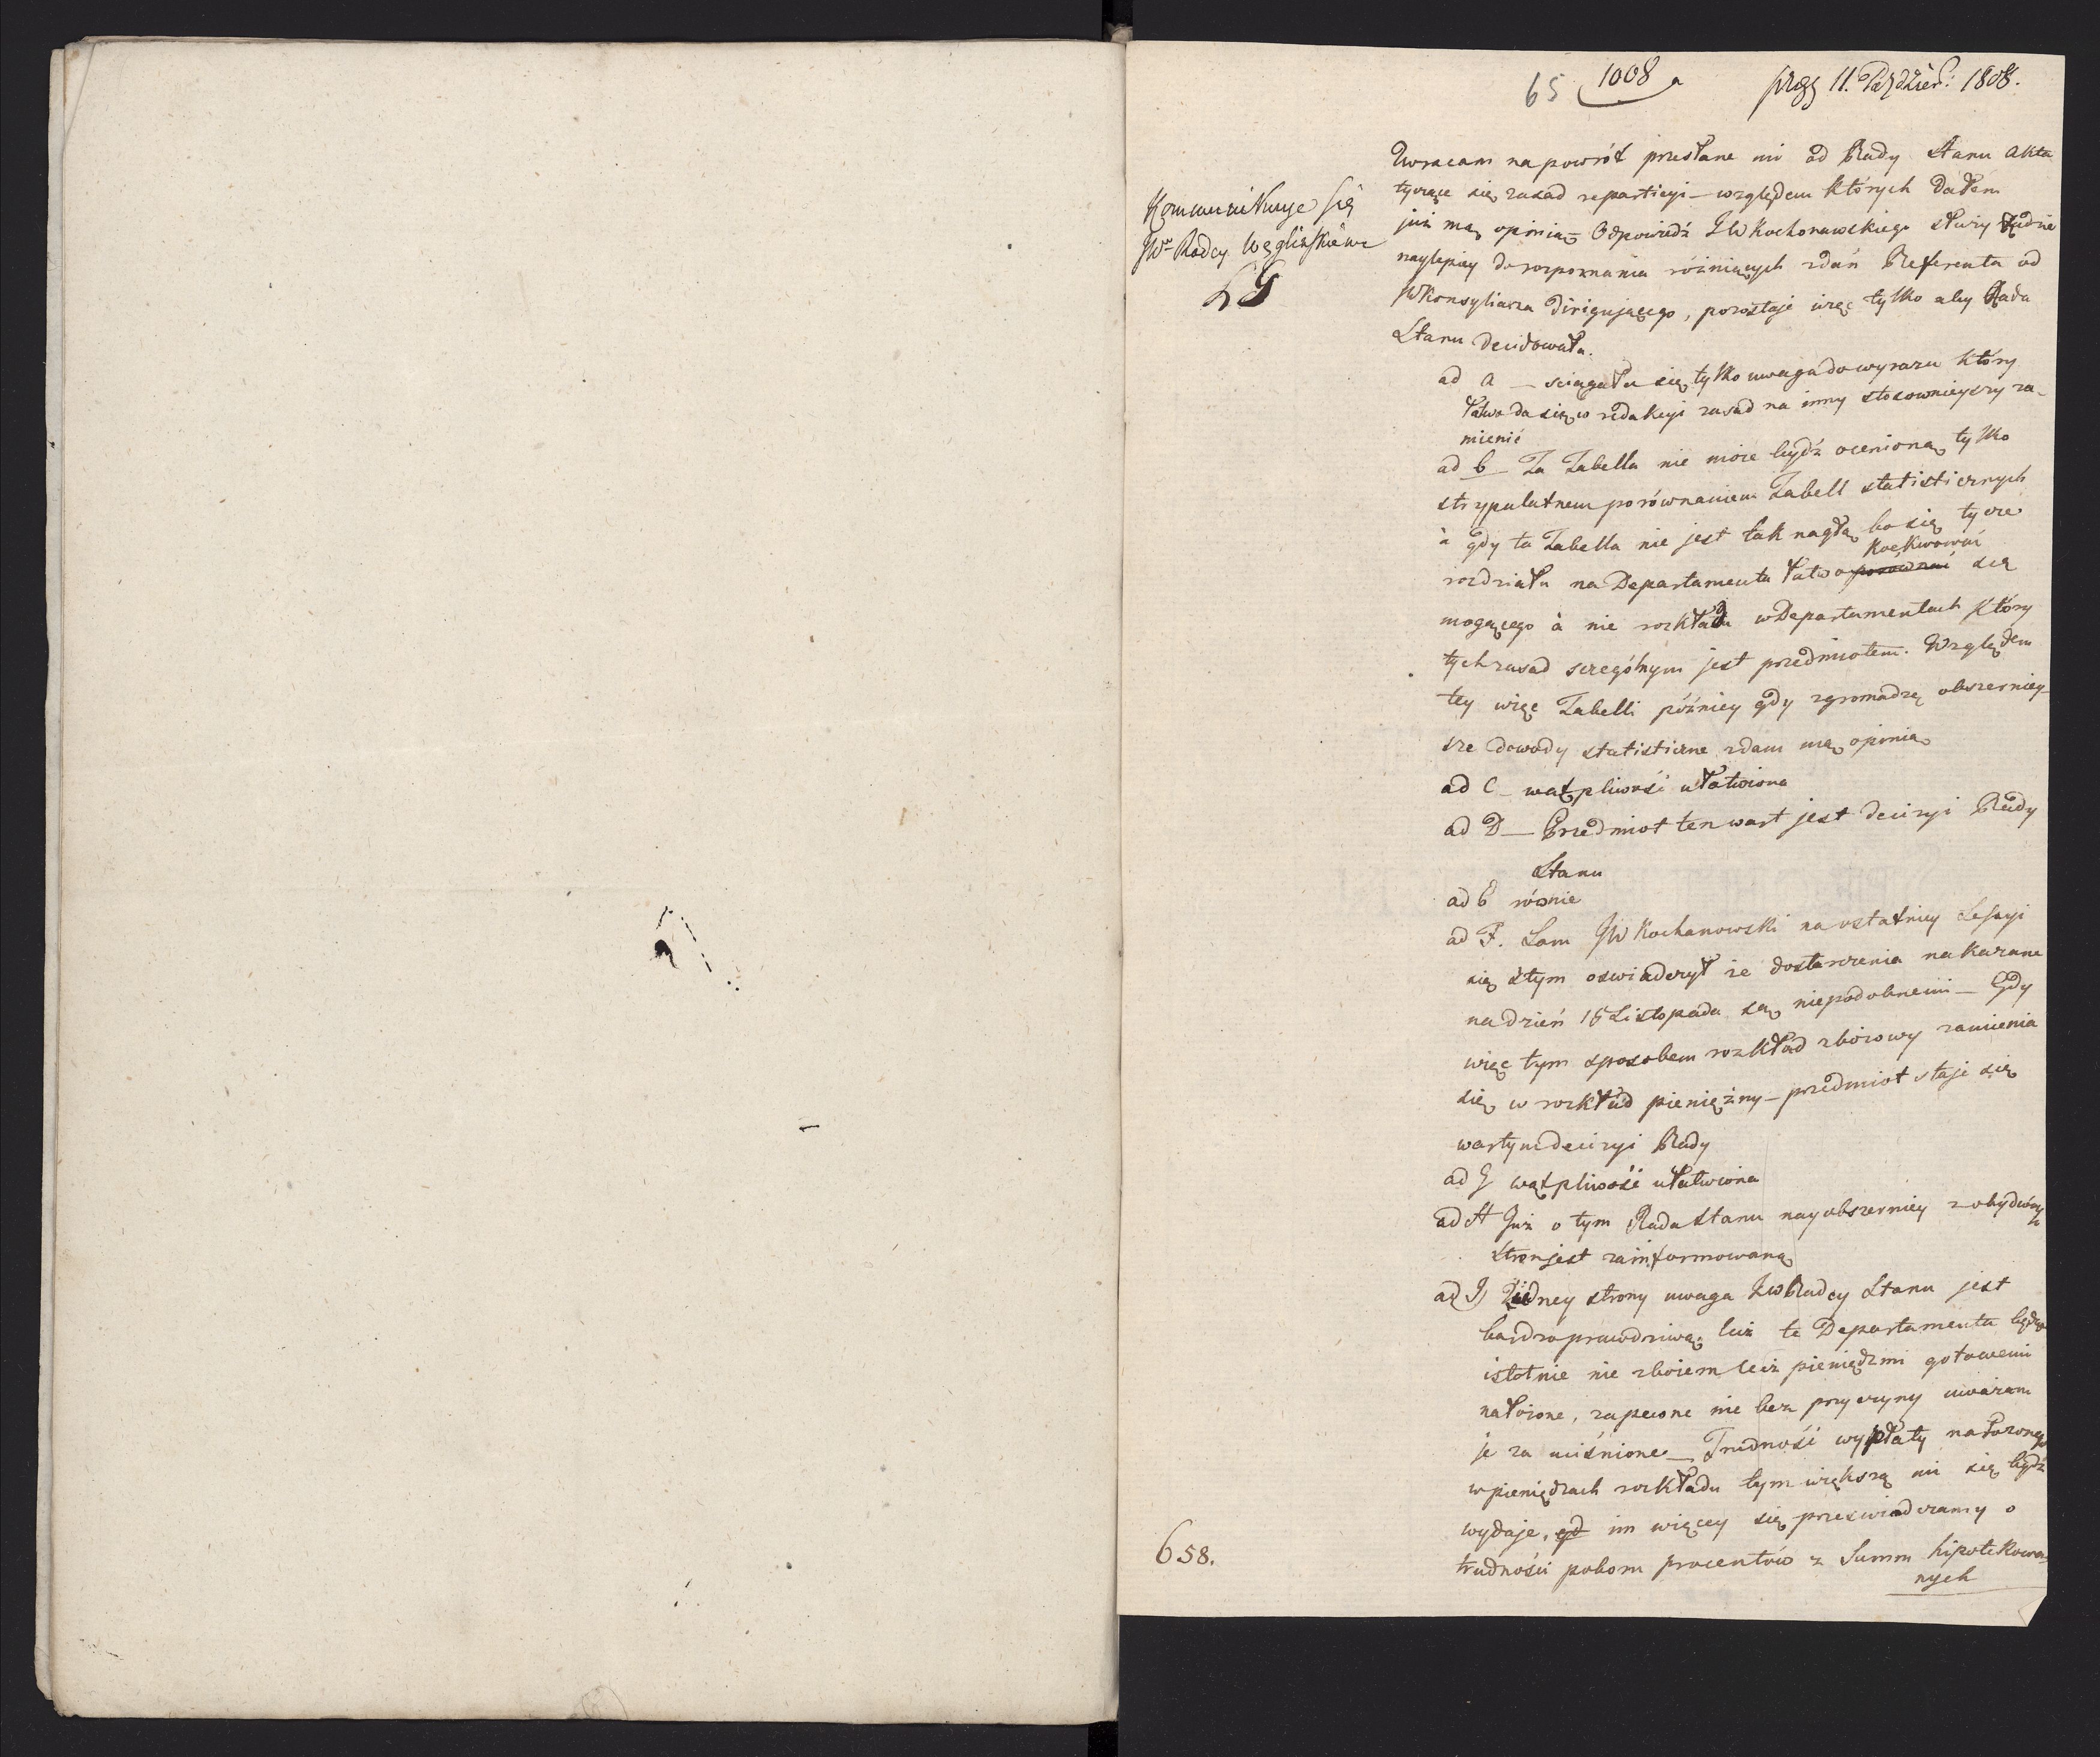 65 1008 a
11. Paździer: 1808.
Kommunikuje się
JWu Radcy Węglińskiemu
Zwracam na powrót przesłane mi od Rady Stanu Akta
tyczące się zasad reparticyi — względem których dałem
już mą opinią — Odpowiedź JW Kochonowskiego służy Radzie
naylepiey do rozpoznania różniących zdań Referenta od
JWKonsyliarza dirigującego, pozostaje więc tylko aby Rada
Stanu decidowała.
ad a — sciągała się tylko uwaga do wyrazu który
łatwo da się w redakcyi zasad na inny stosownieyszy za-
mienić
ad b — Ta Tabella nie może bydź ocenioną tylko
skrypulatnem porównaniem Tabell statisticznych
à gdy ta Tabella nie jest tak nagłą bo się tycze
koekwować
rozdziału na Departamenta łatwo porównać się
mogącego à nie rozkładu w Departamentach który
tych zasad szczególnym jest przedmiotem. Względem
tey więc Tabelli późniey gdy zgromadzę obszerniey-
sze dowody statisticzne zdam mą opinią
ad C — wątpliwość ułatwiona
ad D — Przedmiot ten wart jest decizyi Rady
Stanu
ad E równie
ad F. Sam JW Kochanowski na ostatniey Sessyi
się z tym oswiadczył że dostarczenia nakazane
na dzień 15 Listopada są niepodobnemi — Gdy
więc tym sposobem rozkład zbożowy zamienia
się w rozkład pieniężny — przedmiot staje się
wartym decizyi Rady
ad G wątpliwość ułatwiona
ad H Już o tym Rada Stanu nayobszerniey z obydwóch
stron jest zainformowaną
ad J Z iedney strony uwaga JW Radcy Stanu jest
bardzo prawdziwą; lecz te Departamenta będąc
istotnie nie zbożem lecz pieniędzmi gotowemi
nałożone, zapewne nie bez przyczyny uważam
je za uciśnione — Trudność wypłaty nałożonego
w pieniędzach rozkładu tym większą mi się bydź
wydaje, gd im więcey się przeswiadczamy o
trudności poboru procentów z Summ hipotekowa-
nych
658.